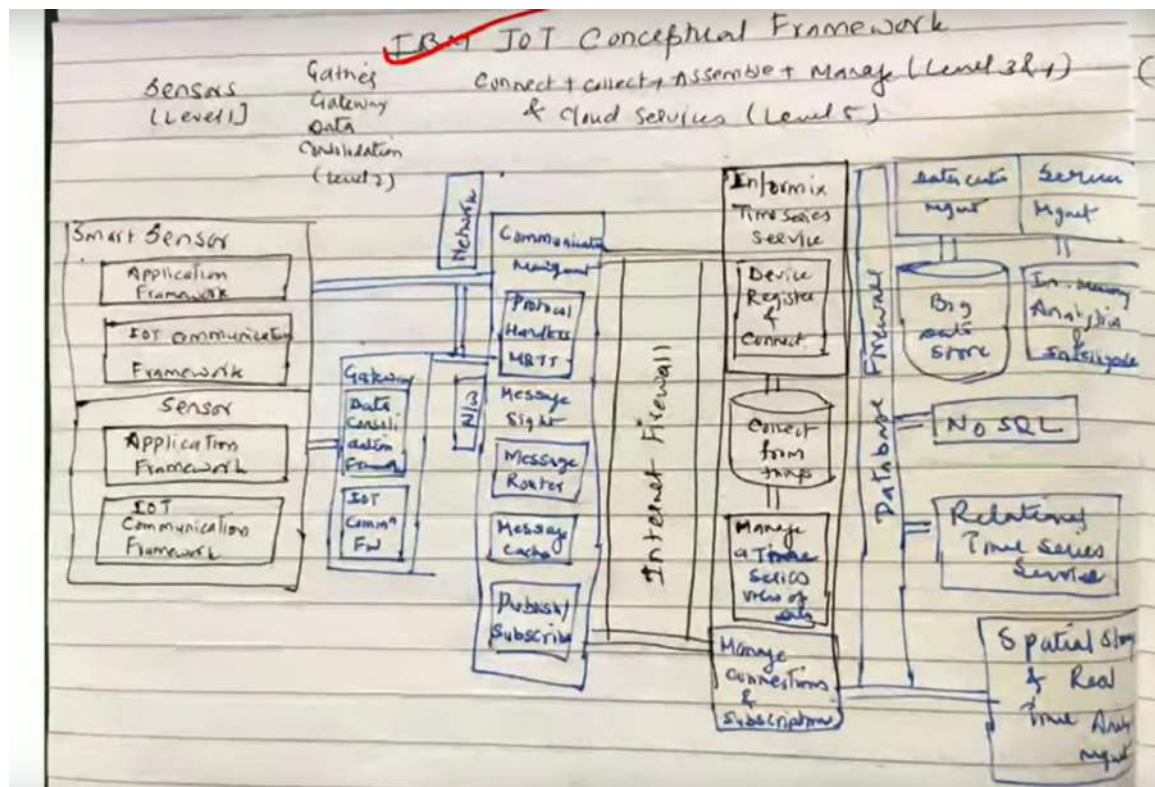 IBM IOT Conceptual Framework
Sensors
(Level 1]
Gather
Gateway
Data
Consolidation
(Level 2)
Connect + collect + Assemble + Manage (Level 3 & 4)
& Cloud Services (Level 5)
(
Smart Sensor
Application
Framework
IOT Communication
Framework
Sensor
Application
Framework
IOT
Communication
Framework
Gateway
Data
Consoli
dation
IOT
Commn
FW
Network
N/w
Communication
Protocol
Handlers
MQTT
Message
Sight
Message
Router
Message
Cache
Publish/
Subscribe
Internet Firewall
Informix
Time series
Service
Device
Register
&
Connect
Collect
from
things
Manage
a Time
Series
view of
data
Manage
connections
&
Subscriptions
Database Firewall
Data center
mgmt
Server
Mgmt
Big
data
store
In-memory
Analytics
&
NO SQL
Relational
Time Series
Service
Spatial
& Real
Time
mgmt